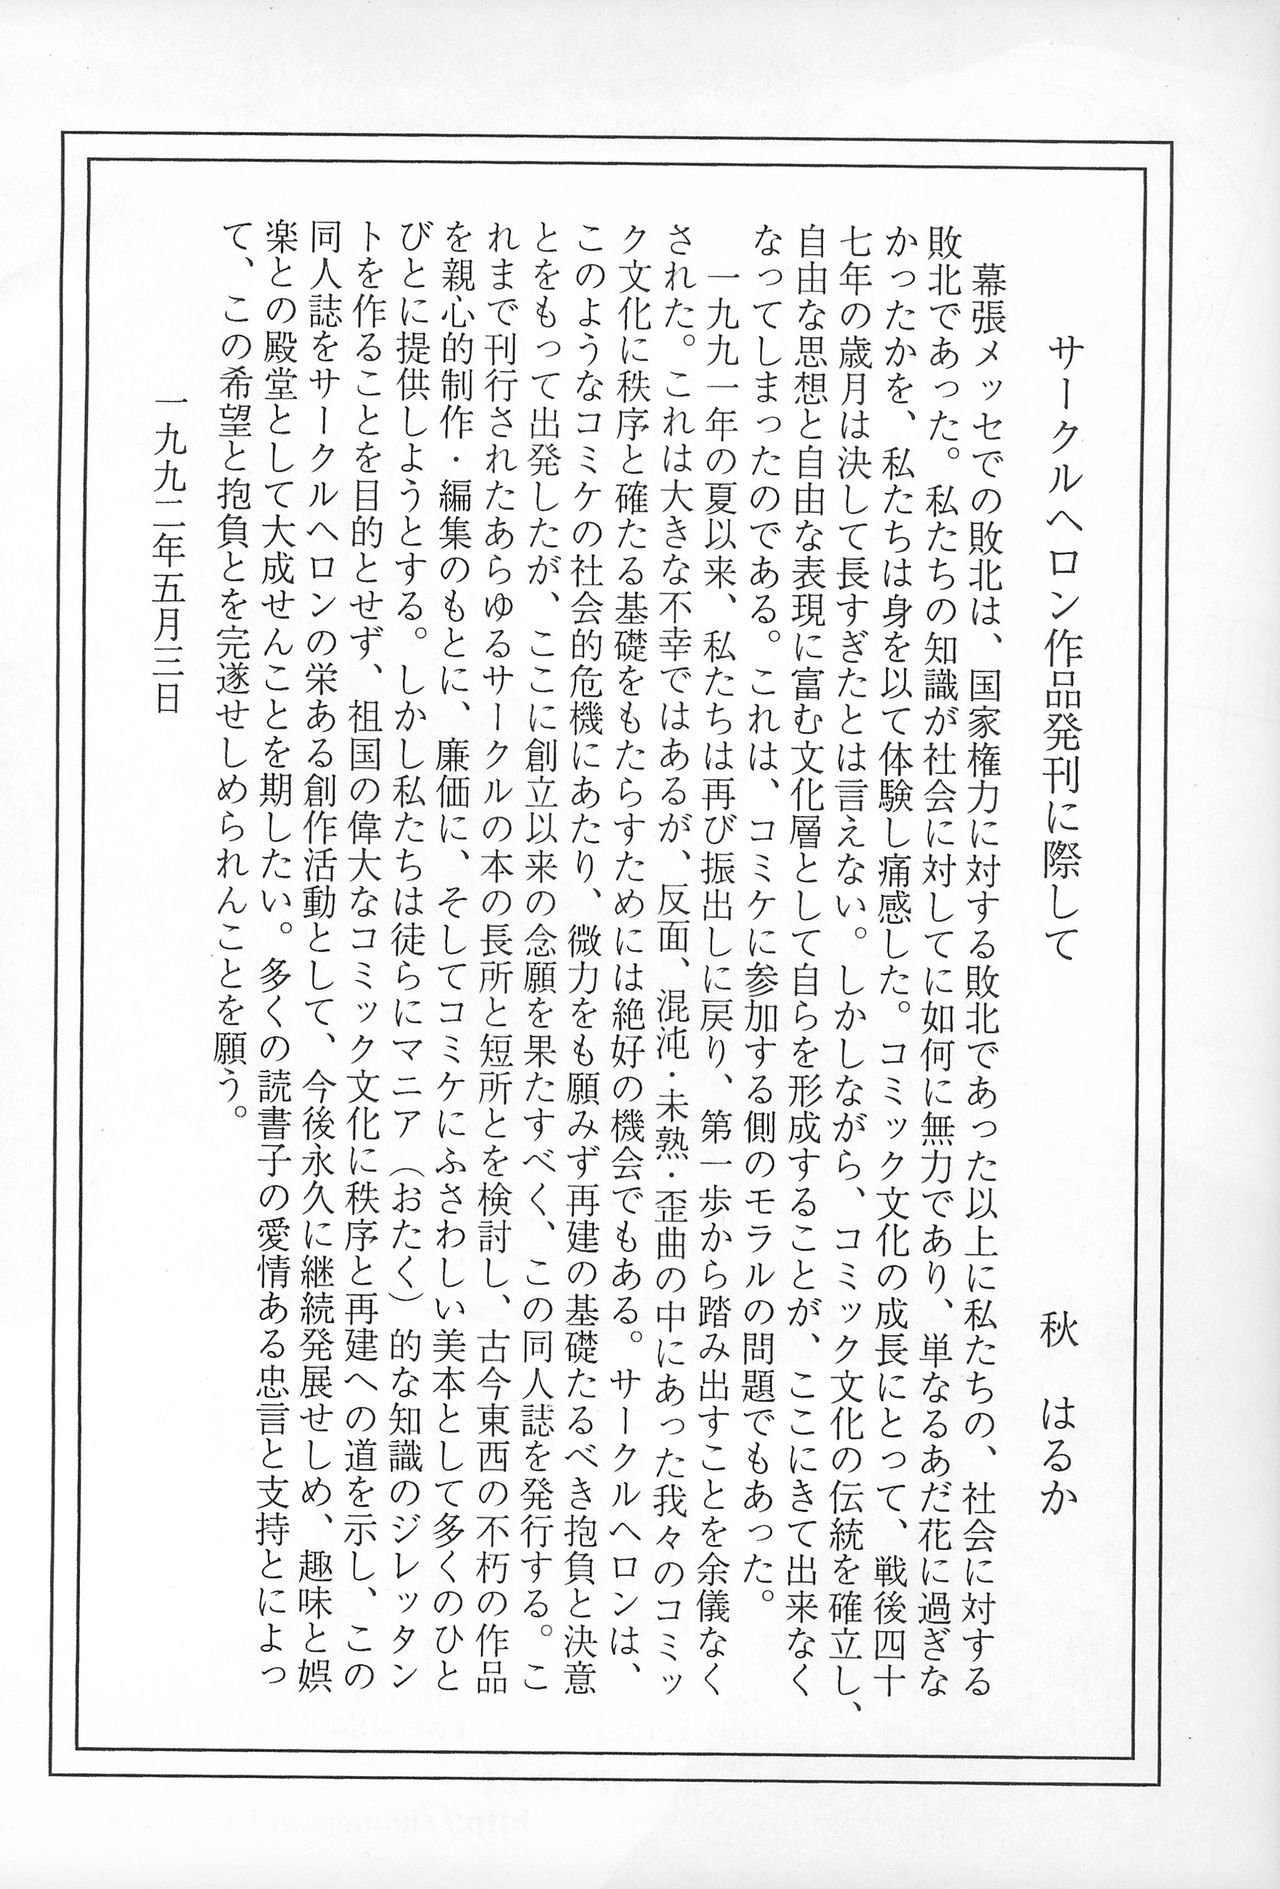 サークルヘロン作品発刊に際して
秋　はるか
　幕張メッセでの敗北は、国家権力に対する敗北であった以上に私たちの、社会に対する
敗北であった。私たちの知識が社会に対してに如何に無力であり、単なるあだ花に過ぎな
かったかを、私たちは身を以て体験し痛感した。コミック文化の成長にとって、戦後四十
七年の歳月は決して長すぎたとは言えない。しかしながら、コミック文化の伝統を確立し、
自由な思想と自由な表現に富む文化層として自らを形成することが、ここにきて出来なく
なってしまったのである。これは、コミケに参加する側のモラルの問題でもあった。
　一九九一年の夏以来、私たちは再び振出しに戻り、第一歩から踏み出すことを余儀なく
された。これは大きな不幸ではあるが、反面、混沌・未熟・歪曲の中にあった我々のコミッ
ク文化に秩序と確たる基礎をもたらすためには絶好の機会でもある。サークルヘロンは、
このようなコミケの社会的危機にあたり、微力をも願みず再建の基礎たるべき抱負と決意
とをもって出発したが、ここに創立以来の念願を果たすべく、この同人誌を発行する。こ
れまで刊行されたあらゆるサークルの本の長所と短所とを検討し、古今東西の不朽の作品
を親心的制作・編集のもとに、廉価に、そしてコミケにふさわしい美本として多くのひと
びとに提供しようとする。しかし私たちは徒らにマニア（おたく）的な知識のジレッタン
トを作ることを目的とせず、祖国の偉大なコミック文化に秩序と再建への道を示し、この
同人誌をサークルヘロンの栄ある創作活動として、今後永久に継続発展せしめ、趣味と娯
楽との殿堂として大成せんことを期したい。多くの読書子の愛情ある忠言と支持とによっ
て、この希望と抱負とを完遂せしめられんことを願う。
一九九二年五月三日